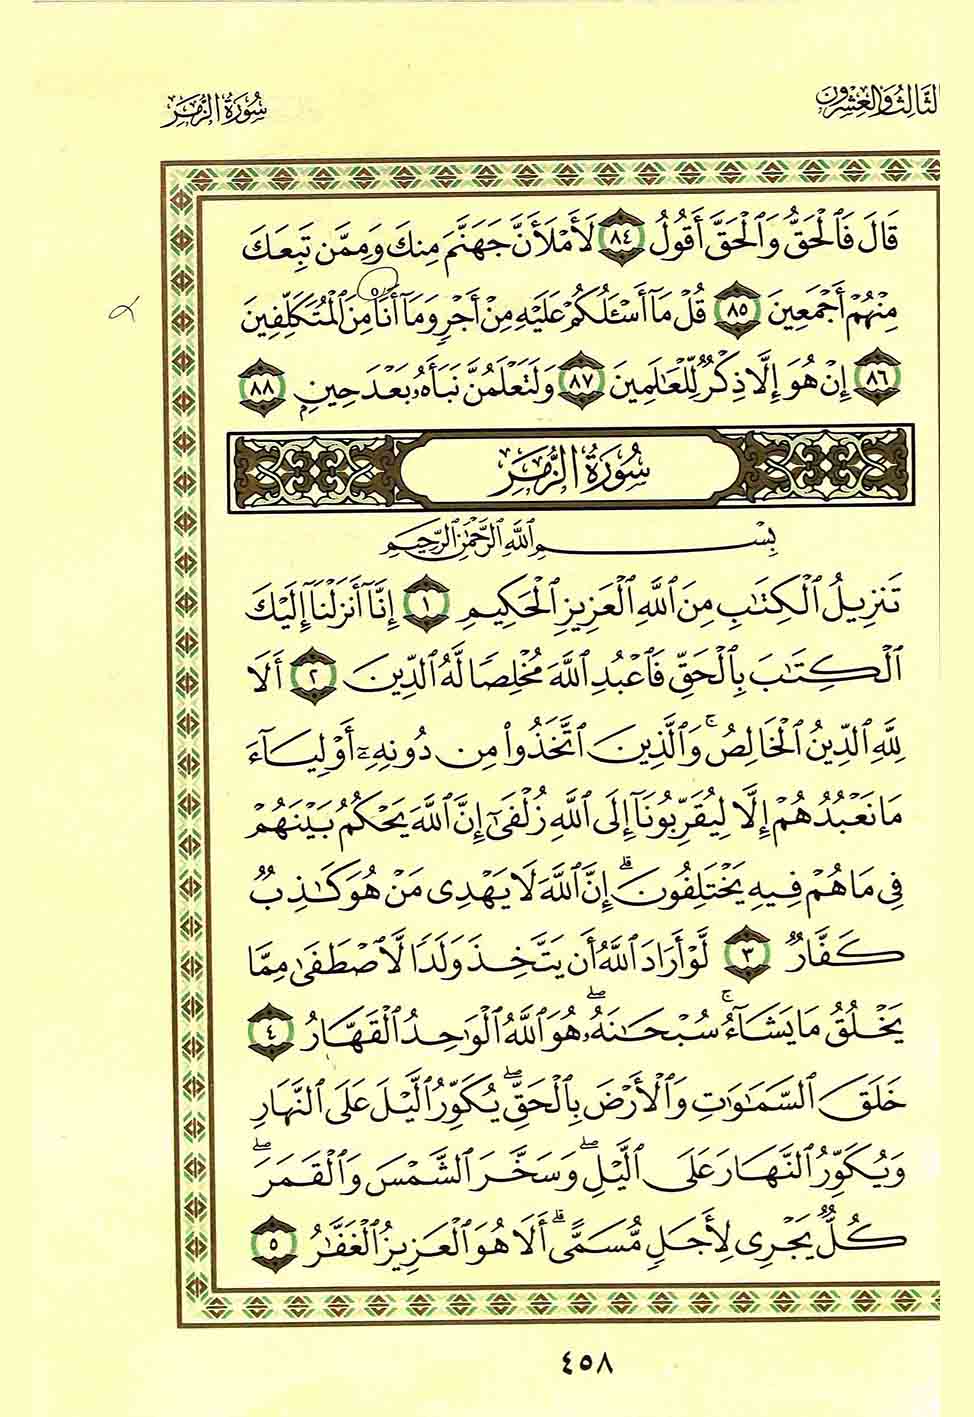 الثالث والعشرون
سورة الزمر
قَالَ فَٱلْحَقُّ وَٱلْحَقَّ أَقُولُ ٨٤ لَأَمْلَأَنَّ جَهَنَّمَ مِنكَ وَمِمَّن تَبِعَكَ
مِنْهُمْ أَجْمَعِينَ ٨٥ قُلْ مَآ أَسْـَٔلُكُمْ عَلَيْهِ مِنْ أَجْرٍ وَمَآ أَنَا۠ مِنَ ٱلْمُتَكَلِّفِينَ
٨٦ إِنْ هُوَ إِلَّا ذِكْرٌ لِّلْعَٰلَمِينَ ٨٧ وَلَتَعْلَمُنَّ نَبَأَهُۥ بَعْدَ حِينٍۭ ٨٨
سُورَةُ الزُّمَرِ
بِسْمِ ٱللَّهِ ٱلرَّحْمَٰنِ ٱلرَّحِيمِ
تَنزِيلُ ٱلْكِتَٰبِ مِنَ ٱللَّهِ ٱلْعَزِيزِ ٱلْحَكِيمِ ١ إِنَّآ أَنزَلْنَآ إِلَيْكَ
ٱلْكِتَٰبَ بِٱلْحَقِّ فَٱعْبُدِ ٱللَّهَ مُخْلِصًا لَّهُ ٱلدِّينَ ٢ أَلَا
لِلَّهِ ٱلدِّينُ ٱلْخَالِصُ ۚ وَٱلَّذِينَ ٱتَّخَذُوا۟ مِن دُونِهِۦٓ أَوْلِيَآءَ
مَا نَعْبُدُهُمْ إِلَّا لِيُقَرِّبُونَآ إِلَى ٱللَّهِ زُلْفَىٰٓ إِنَّ ٱللَّهَ يَحْكُمُ بَيْنَهُمْ
فِى مَا هُمْ فِيهِ يَخْتَلِفُونَ ۗ إِنَّ ٱللَّهَ لَا يَهْدِى مَنْ هُوَ كَٰذِبٌ
كَفَّارٌ ٣ لَّوْ أَرَادَ ٱللَّهُ أَن يَتَّخِذَ وَلَدًا لَّٱصْطَفَىٰ مِمَّا
يَخْلُقُ مَا يَشَآءُ ۚ سُبْحَٰنَهُۥ ۖ هُوَ ٱللَّهُ ٱلْوَٰحِدُ ٱلْقَهَّارُ ٤
خَلَقَ ٱلسَّمَٰوَٰتِ وَٱلْأَرْضَ بِٱلْحَقِّ ۖ يُكَوِّرُ ٱلَّيْلَ عَلَى ٱلنَّهَارِ
وَيُكَوِّرُ ٱلنَّهَارَ عَلَى ٱلَّيْلِ ۖ وَسَخَّرَ ٱلشَّمْسَ وَٱلْقَمَرَ ۖ
كُلٌّ يَجْرِى لِأَجَلٍ مُّسَمًّى ۗ أَلَا هُوَ ٱلْعَزِيزُ ٱلْغَفَّٰرُ ٥
٤٥٨